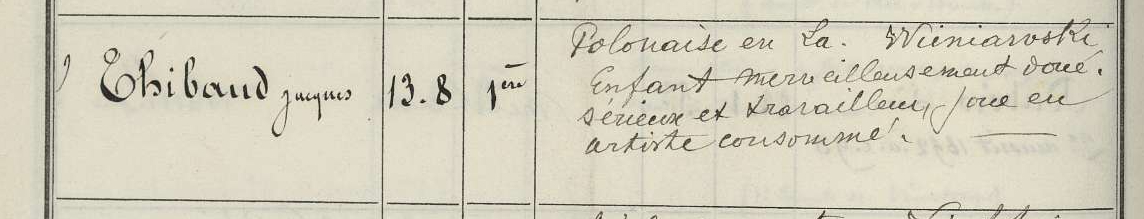 Thibaud Jacques 13.8 1ère
Polonaise en La. Wieniawski
Enfant merveilleusement doué.
sérieux et travailleur, joue en
artiste consommé.